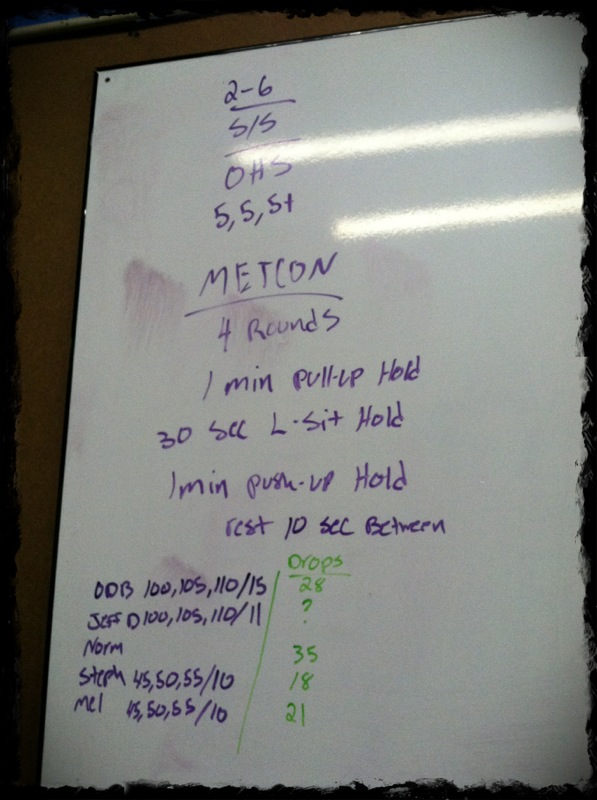 2-6
S/S
OHS
5,5,5+
METCON
4 Rounds
1 min pull-up Hold
30 sec L-Sit Hold
1min push-up Hold
rest 10 sec Between
Drops
ODB 100,105,110/15 28
Jeff D 100,105,110/11 ?
Norm 35
Steph 45,50,55/10 18
Mel 45,50,55/10 21